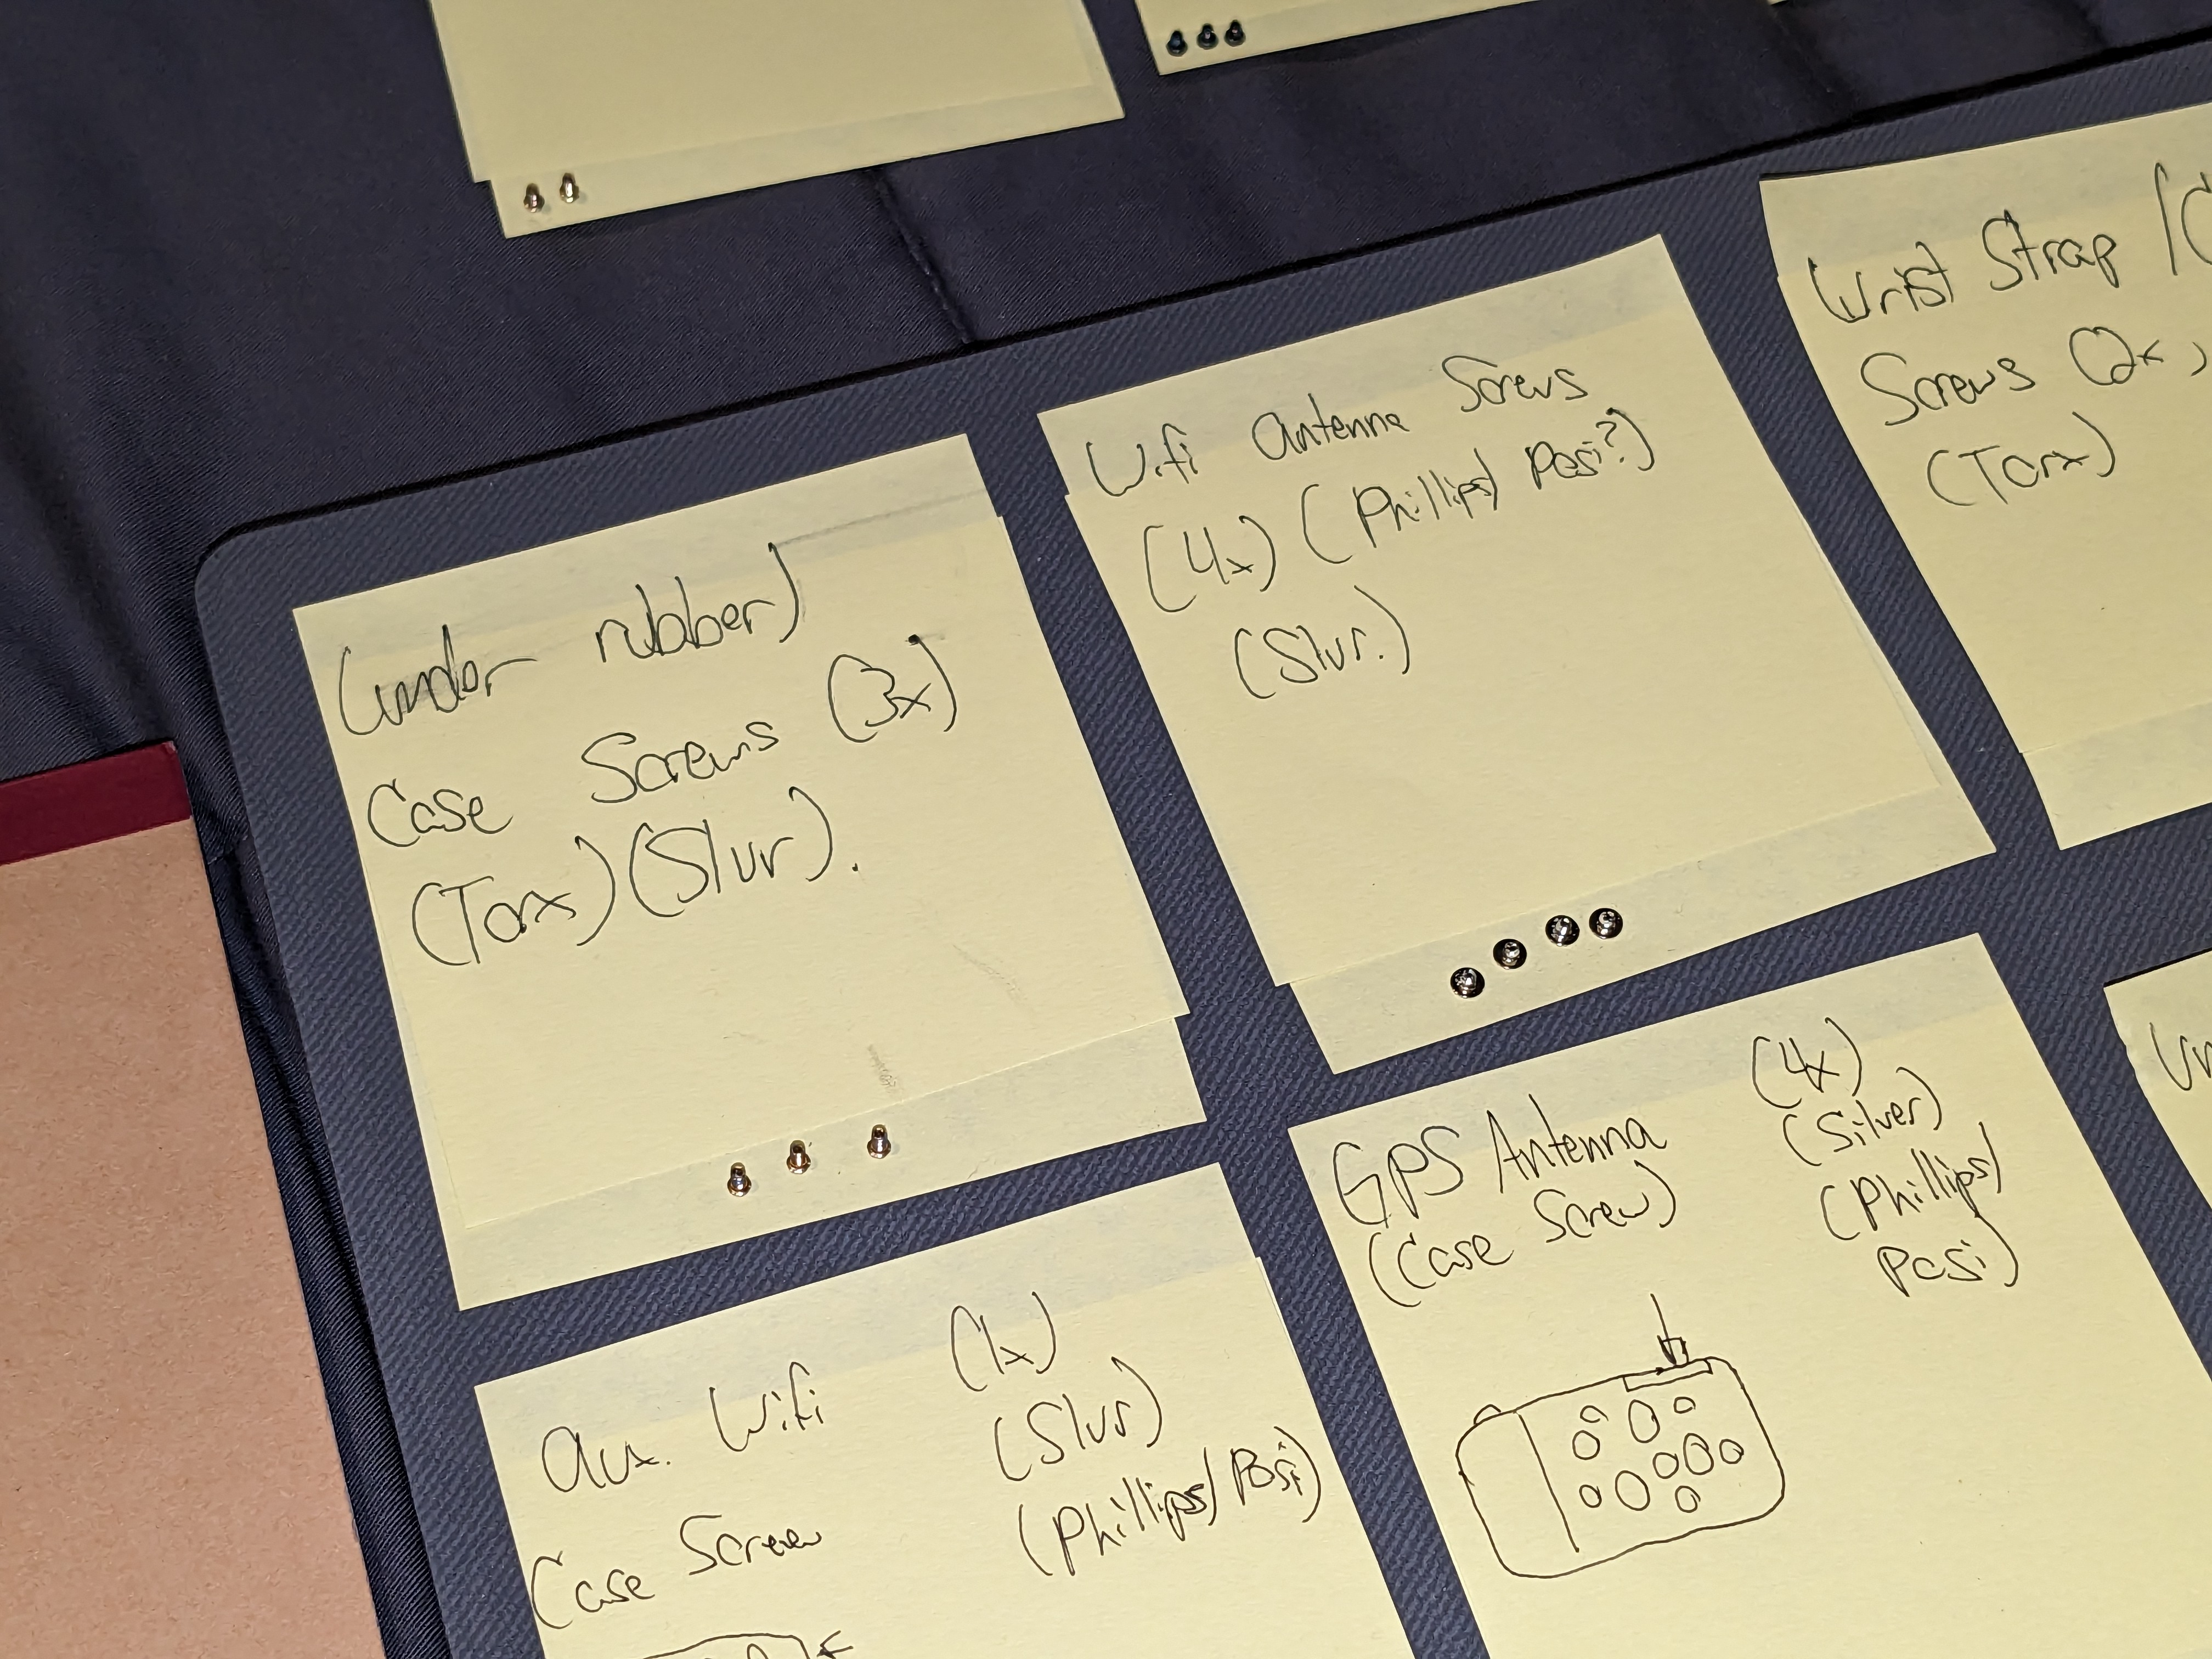 (under rubber)
Case Screws (3x)
(Torx) (Slvr).
Wifi Antenna Screws
(4x) (Phillips/Posi?)
(Slvr.)
Wrist Strap /
Screws (2x,
(Torx)
Aux. Wifi
Case Screw
(1x)
(Slvr)
(Phillips/Posi)
GPS Antenna
(Case Screw)
(4x)
(Silver)
(Phillips/
Posi)